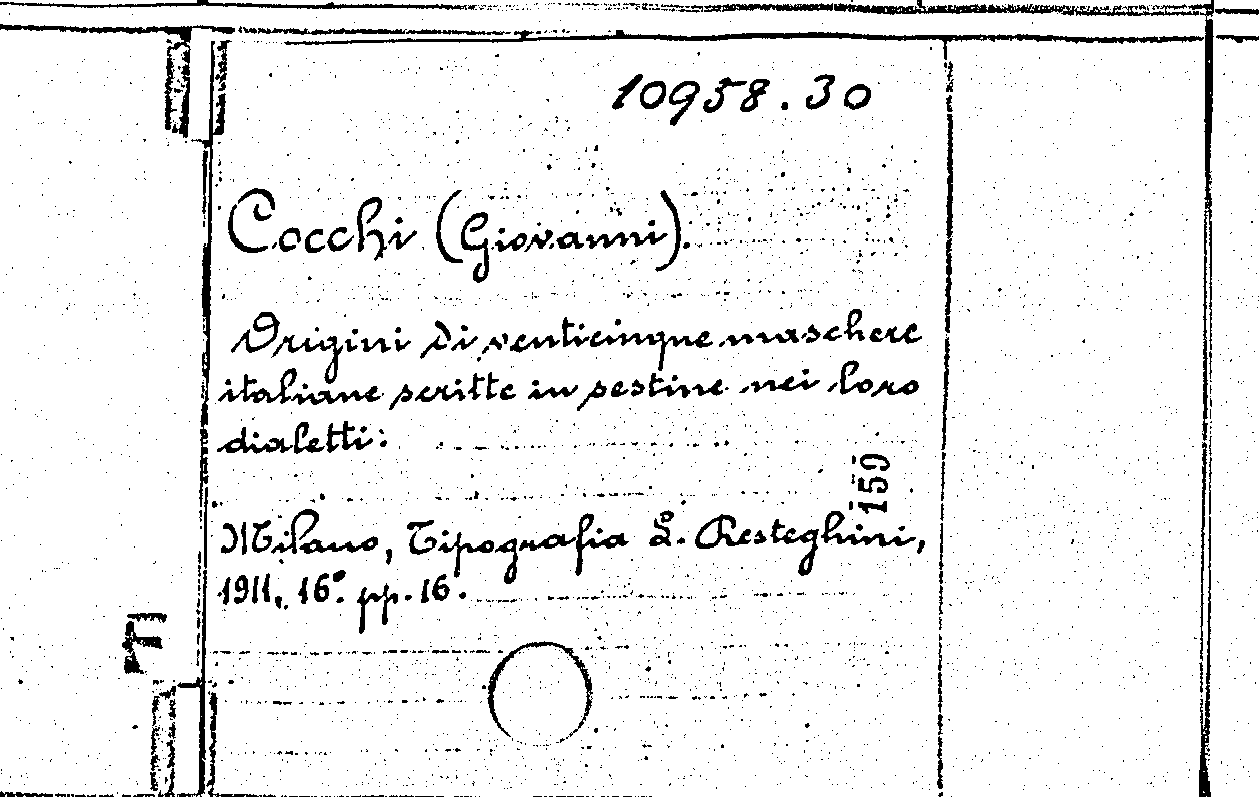 10958.30
Cocchi (Giovanni).
Origini di venticinque maschere
italiane scritte in sestine nei loro
dialetti:
159
Milano, Tipografia L. Resteghini,
1911, 16° pp. 16.
F